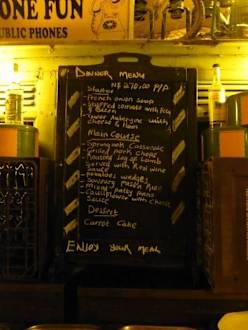 ONE FUN
PUBLIC PHONES
DINNER MENU
N$ 270.00 P/P
Starter
French onion soup
Stuffed tomato with feta
& Bacon
Aubergine with
cheese & Ham
Main Course
Casserole
Grilled pork chops
Roasted leg of Lamb
Served with Red wine
Sauce
Potatoes wedges
Savoury Rice
Mixed Patty pans
Cauliflower with Cheese
Sauce
Dessert
Carrot Cake
ENJOY YOUR MEAL